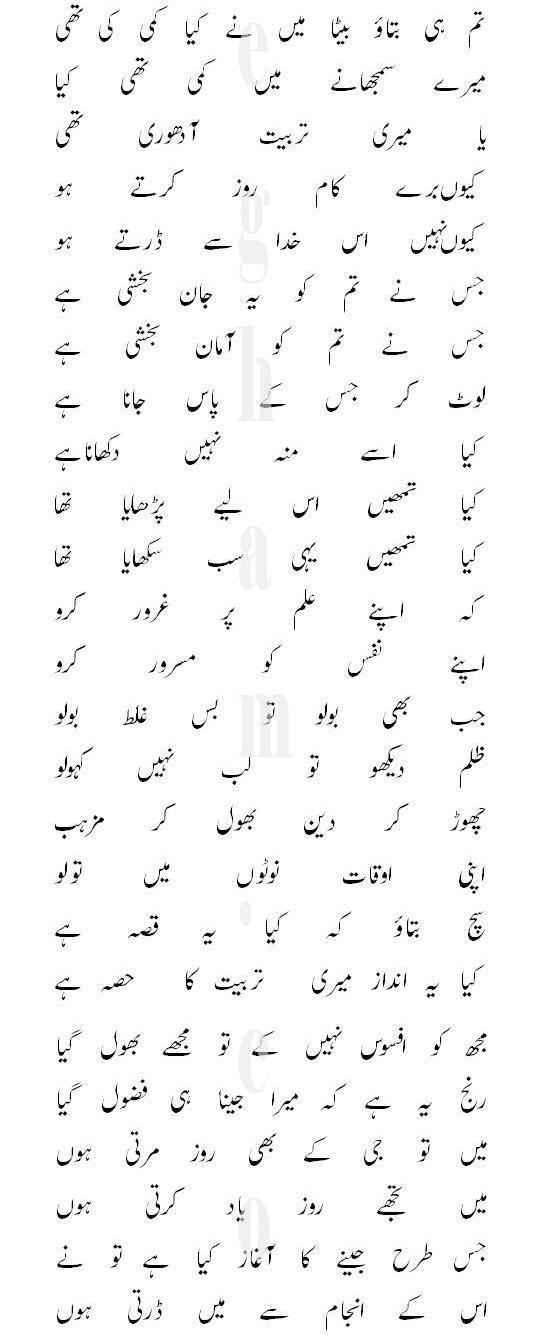 تم ہی بتاؤ بیٹا میں نے کیا کمی کی تھی
میرے سمجھانے میں کمی تھی کیا
یا میری تربیت آدھوری تھی
کیوں برے کام روز کرتے ہو
کیوں نہیں اس خدا سے ڈرتے ہو
جس نے تم کو یہ جان بخشی ہے
جس نے تم کو آمان بخشی ہے
لوٹ کر جس کے پاس جانا ہے
کیا اسے منہ نہیں دکھانا ہے
کیا تمھیں اس لیے پڑھایا تھا
کیا تمھیں یہی سب سکھایا تھا
کہ اپنے علم پر غرور کرو
اپنے نفس کو مسرور کرو
جب بھی بولو تو بس غلط بولو
ظلم دیکھو تو لب نہیں کہولو
چھوڑ کر دین بھول کر مزہب
اپنی اوقات نوٹوں میں تولو
سچ بتاؤ کہ کیا یہ قصہ ہے
کیا یہ انداز میری تربیت کا حصہ ہے
مجھ کو افسوس نہیں کے تو مجھے بھول گیا
رنج یہ ہے کہ میرا جینا ہی فضول گیا
میں تو جی کے بھی روز مرتی ہوں
میں تجھے روز یاد کرتی ہوں
جس طرح جینے کا آغاز کیا ہے تو نے
اس کے انجام سے میں ڈرتی ہوں
egham.eo